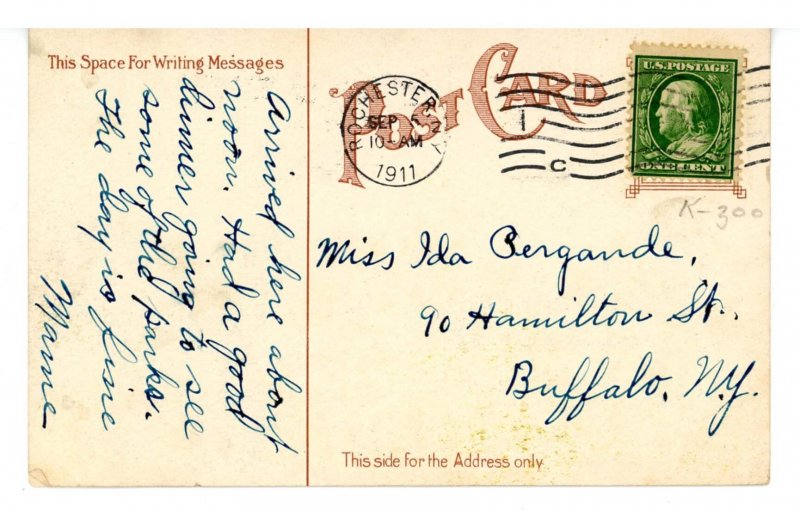 This Space For Writing Messages
POST CARD
ROCHESTER, N.Y.
SEP 5
10-AM
1911
1
C
U.S. POSTAGE
ONE CENT
K-300
Arrived here about
noon. Had a good
dinner going to see
some of the parks.
The day is fine
Mame
Miss Ida Pergande,
90 Hamilton St.
Buffalo, N.Y.
This side for the Address only